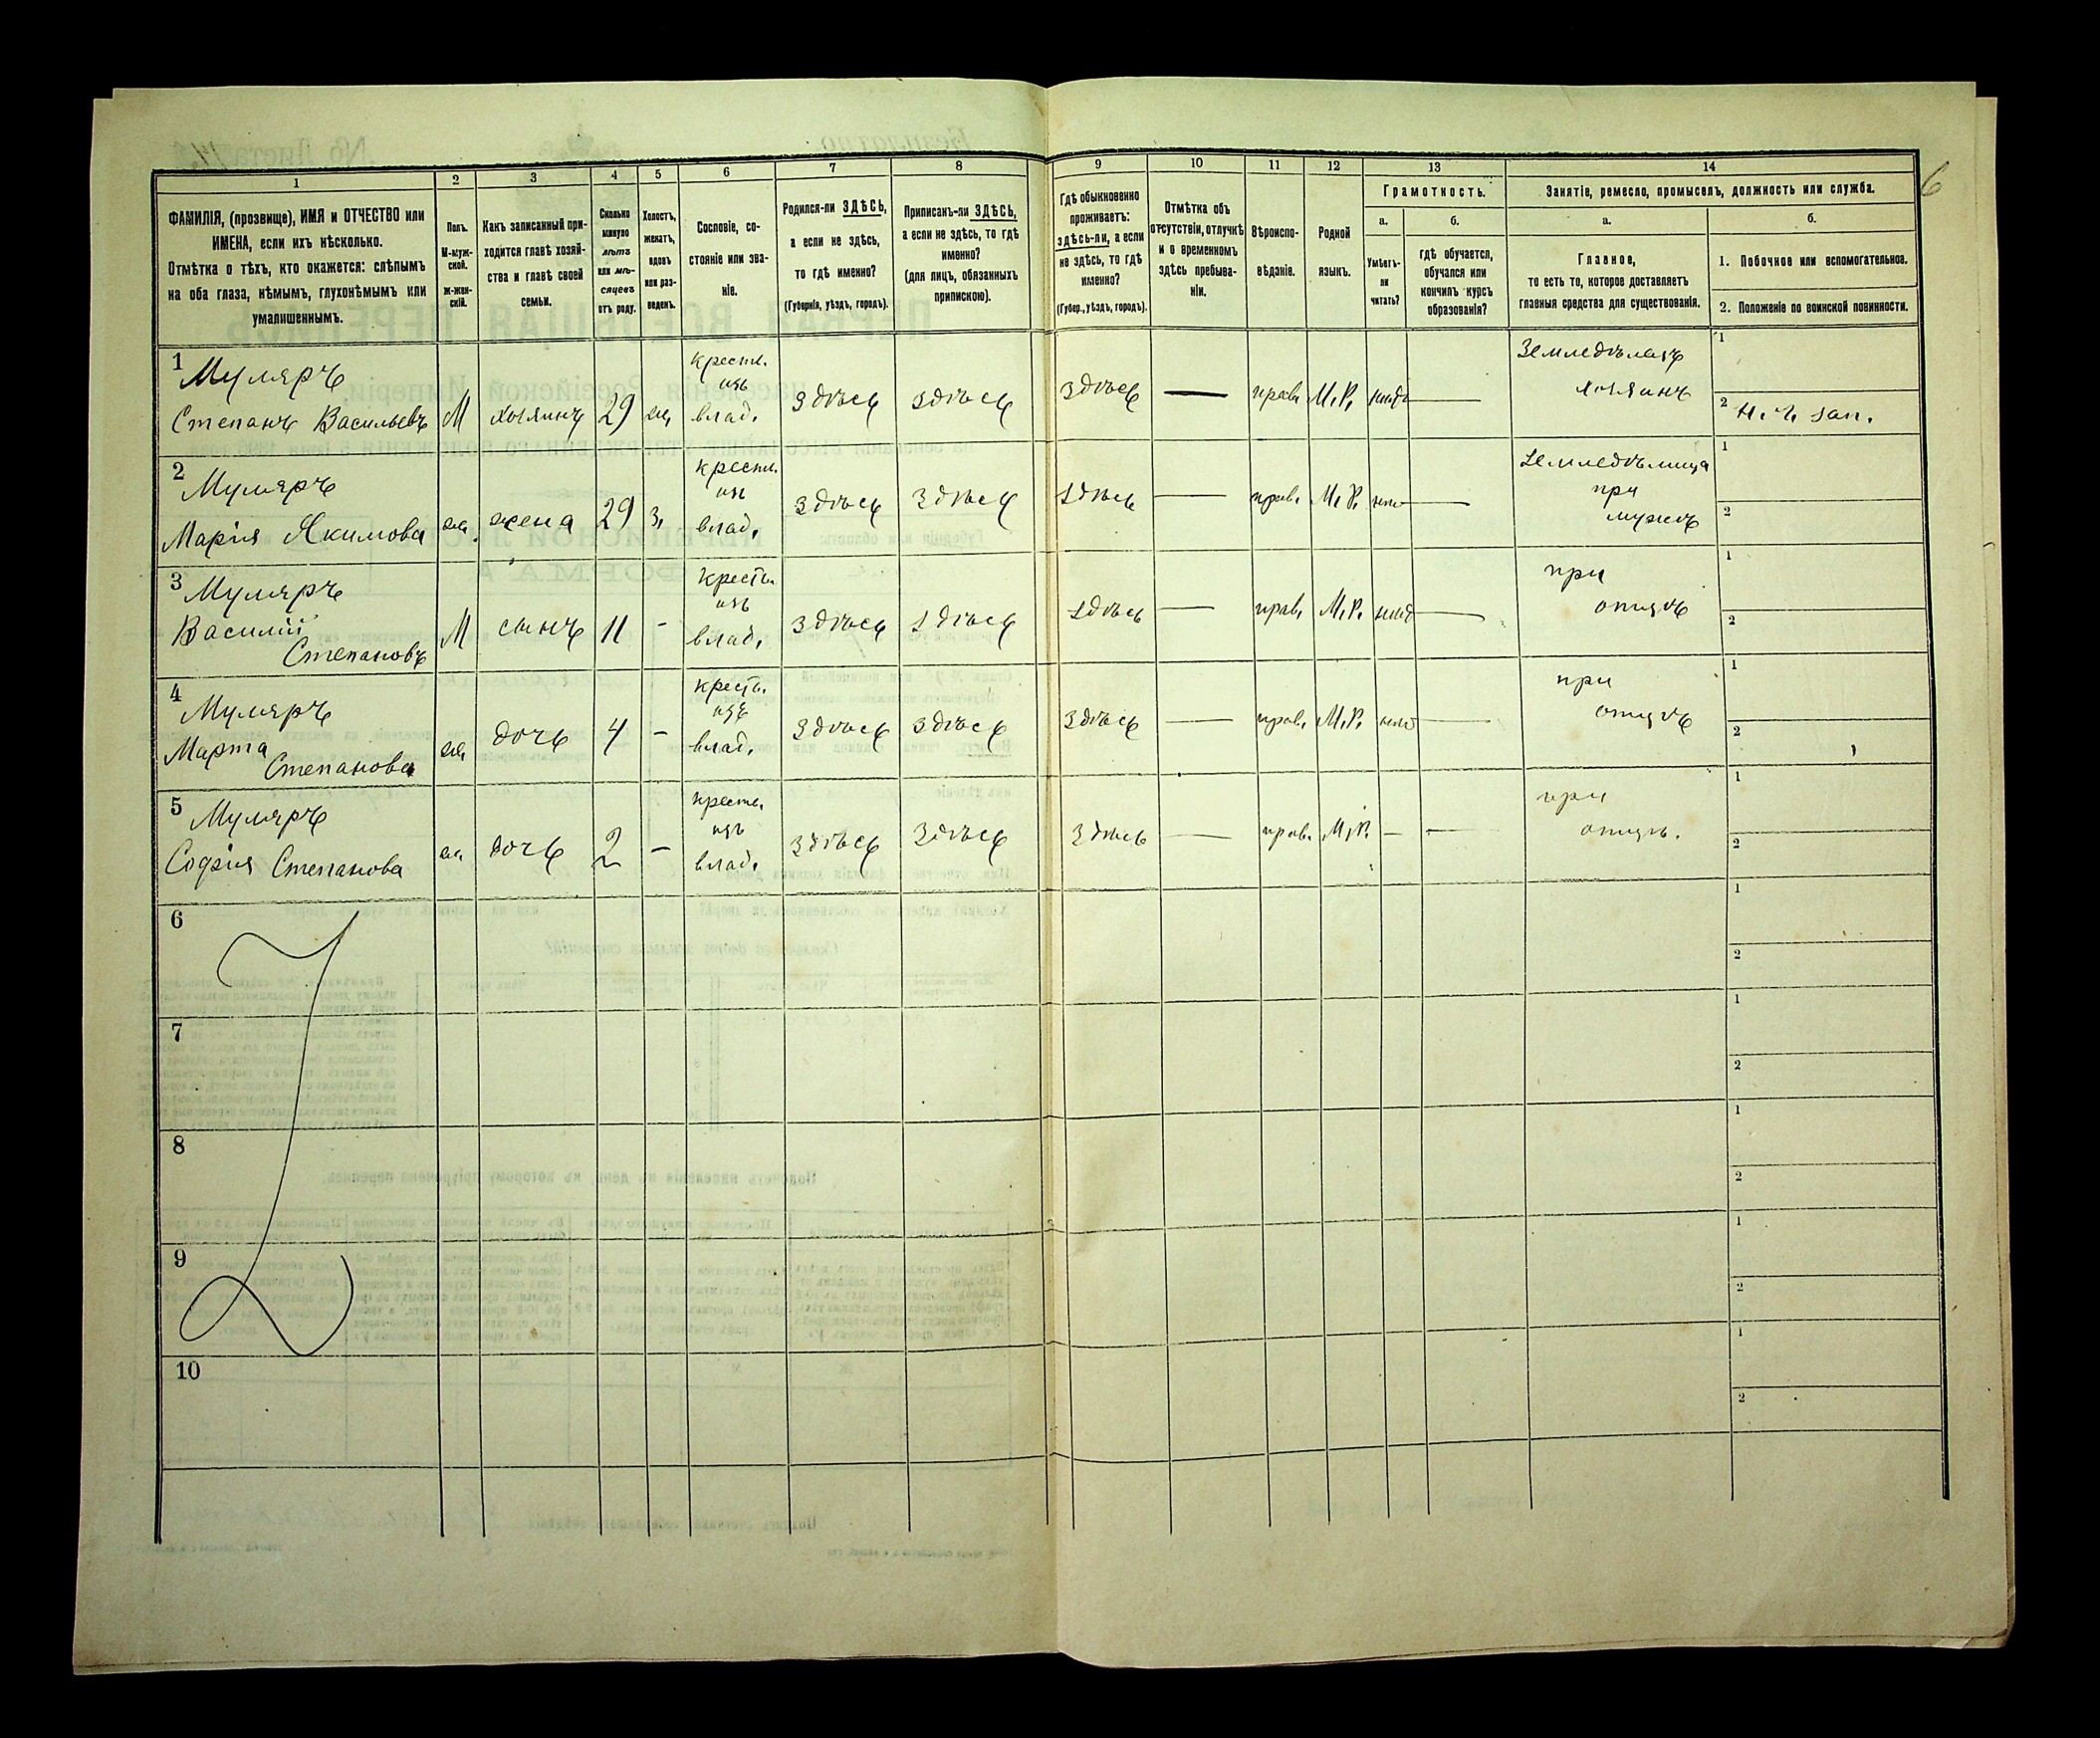 1
2
3
4
5
6
7
8
9
10
11
12
13
14
6
ФАМИЛІЯ, (прозвище), ИМЯ и ОТЧЕСТВО или
ИМЕНА, если ихъ нѣсколько.
Отмѣтка о тѣхъ, кто окажется: слѣпымъ
на оба глаза, нѣмымъ, глухонѣмымъ или
умалишеннымъ.
Полъ.
М-муж-
ской.
ж-жен-
скій.
Какъ записанный при-
ходится главѣ хозяй-
ства и главѣ своей
семьи.
Сколько
минуло
лѣтъ
или мѣ-
сяцевъ
отъ роду.
Холостъ,
женатъ,
вдовъ
или раз-
веденъ.
Сословіе, со-
стояніе или зва-
ніе.
Родился-ли ЗДѢСЬ,
а если не здѣсь,
то гдѣ именно?
(Губернія, уѣздъ, городъ).
Приписанъ-ли ЗДѢСЬ,
а если не здѣсь, то гдѣ
именно?
(для лицъ, обязанныхъ
припискою).
Гдѣ обыкновенно
проживаетъ:
здѣсь-ли, а если
не здѣсь, то гдѣ
именно?
(Губер., уѣздъ, городъ).
Отмѣтка объ
отсутствіи, отлучкѣ
и о временномъ
здѣсь пребыва-
ніи.
Вѣроиспо-
вѣданіе.
Родной
языкъ.
Грамотность.
а.
Умѣетъ-
ли
читать?
б.
гдѣ обучается,
обучался или
кончилъ курсъ
образованія?
Занятіе, ремесло, промыселъ, должность или служба.
а.
Главное,
то есть то, которое доставляетъ
главныя средства для существованія.
б.
1. Побочное или вспомогательное.
2. Положеніе по воинской повинности.
1
Муляръ
Степанъ Васильевъ
М
хозяинъ
29
ж.
крестьян.
изъ
влад.
здѣсь
здѣсь
здѣсь
—
прав.
М. Р.
—
Земледѣлецъ
хозяинъ
1
2
2
Муляръ
Марія Якимова
ж.
жена
29
з.
крестьян.
изъ
влад.
здѣсь
здѣсь
здѣсь
—
прав.
М. Р.
—
при
мужѣ
1
2
3
Муляръ
Василій
Степановъ
М
сынъ
11
-
крестьян.
изъ
влад.
здѣсь
здѣсь
здѣсь
—
прав.
М. Р.
—
при
отцѣ
1
2
4
Муляръ
Марта
Степанова
ж.
дочь
4
-
крестьян.
изъ
влад.
здѣсь
здѣсь
здѣсь
—
прав.
М. Р.
—
при
отцѣ
1
2
5
Муляръ
Софія Степанова
ж.
дочь
2
-
крестьян.
изъ
влад.
здѣсь
здѣсь
здѣсь
—
прав.
М. Р.
—
—
при
отцѣ.
1
2
6
1
2
7
1
2
8
1
2
9
1
2
10
1
2